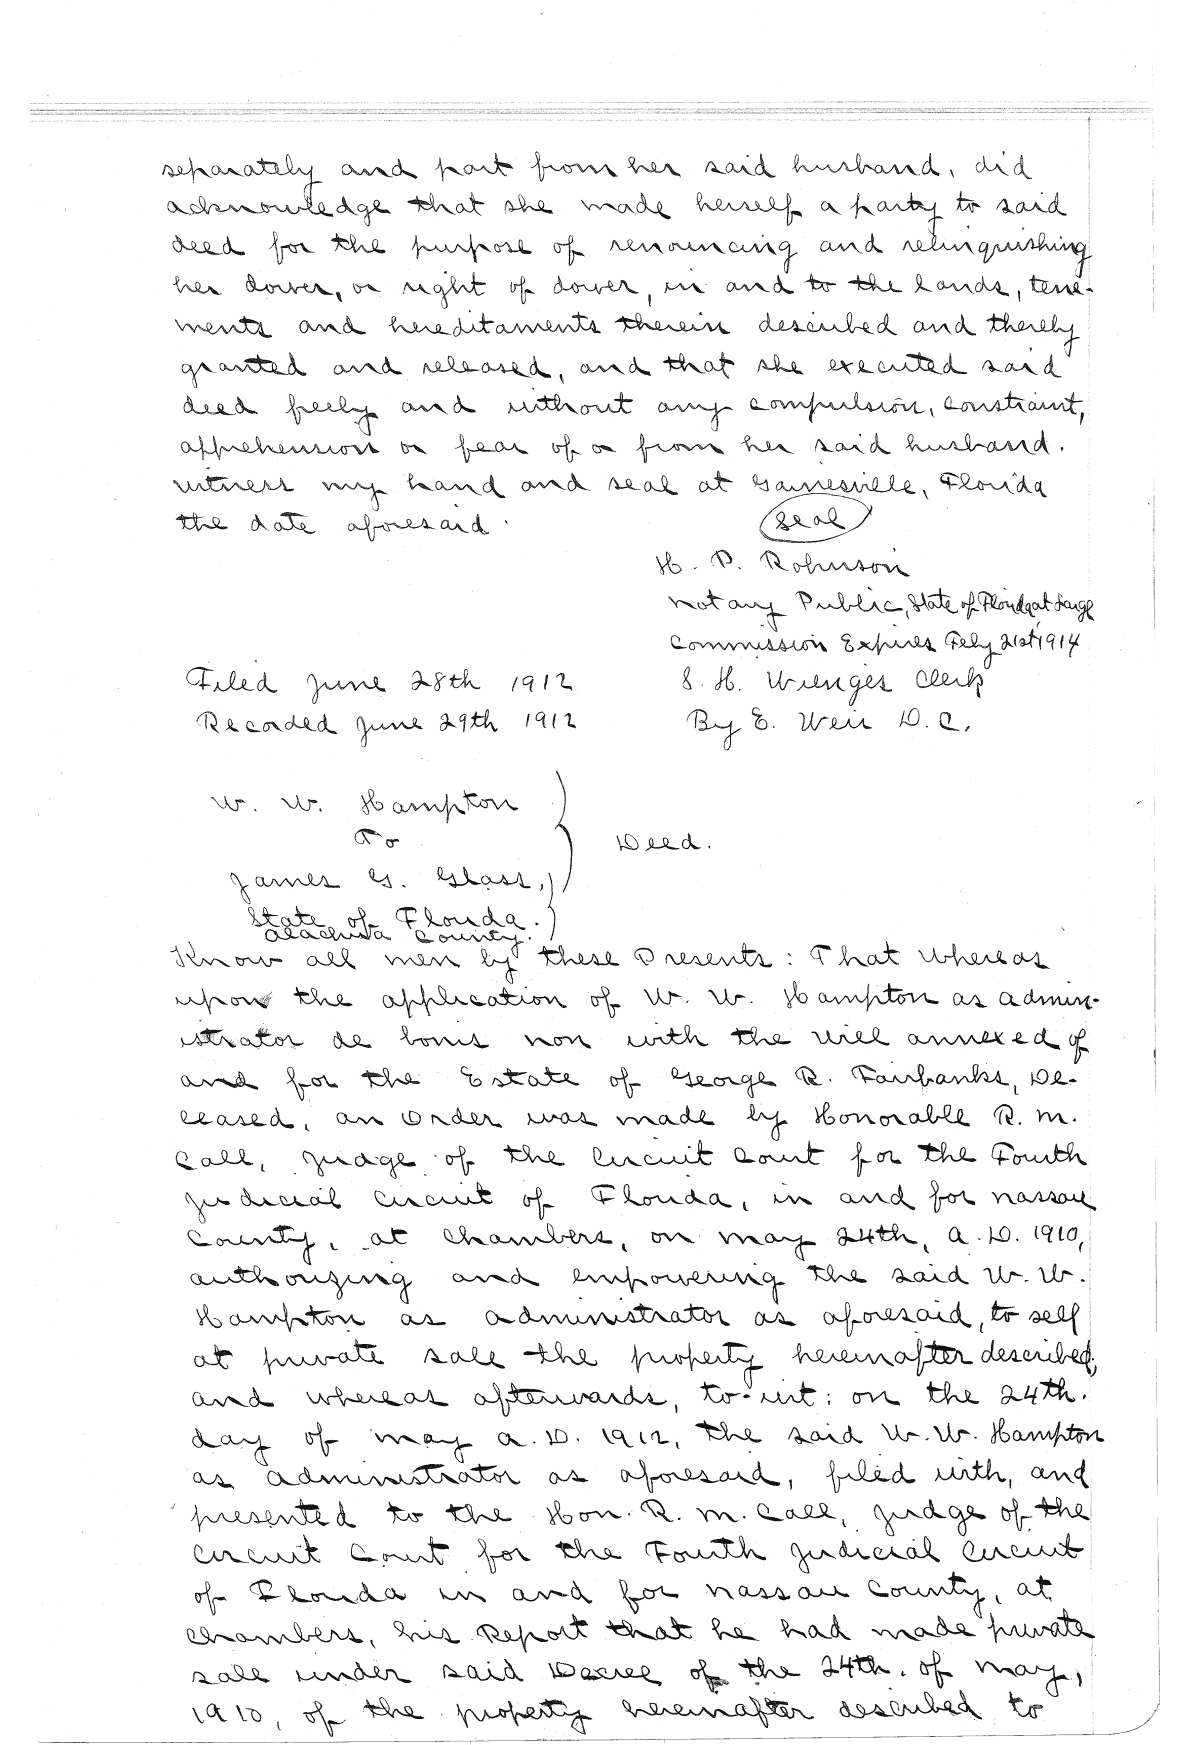 separately and part from her said husband, did
acknowledge that she made herself a party to said
deed for the purpose of renouncing and relinquishing
her dower, or right of dower, in and to the lands, tene-
ments and hereditaments therein described and thereby
granted and released, and that she executed said
deed freely and without any compulsion, constraint,
apprehension or fear of or from her said husband.
witness my hand and seal at Gainesville, Florida
the date aforesaid.
Seal
H. P. Robinson
Notary Public, State of Florida at Large
Commission Expires Feby 21st 1914
Filed June 28th 1912
S. H. Wienges Clerk
Recorded June 29th 1912
By E. Weir D. C.
W. W. Hampton
To
Deed.
James G. Glass,
State of Florida.
Alachua County.
Know all men by these Presents: That whereas
upon the application of W. W. Hampton as admin-
istrator de bonis non with the will annexed of
and for the Estate of George R. Fairbanks, De-
ceased, an Order was made by Honorable R. M.
Call, Judge of the Circuit Court for the Fourth
Judicial Circuit of Florida, in and for Nassau
County, at Chambers, on May 24th, A. D. 1910,
authorizing and empowering the said W. W.
Hampton as administrator as aforesaid, to sell
at private sale the property hereinafter described,
and whereas afterwards, to-wit: on the 24th.
day of May A. D. 1912, the said W. W. Hampton
as administrator as aforesaid, filed with, and
presented to the Hon. R. M. Call, Judge of the
Circuit Court for the Fourth Judicial Circuit
of Florida in and for Nassau County, at
Chambers, his Report that he had made private
sale under said Decree of the 24th. of May,
1910, of the property hereinafter described to